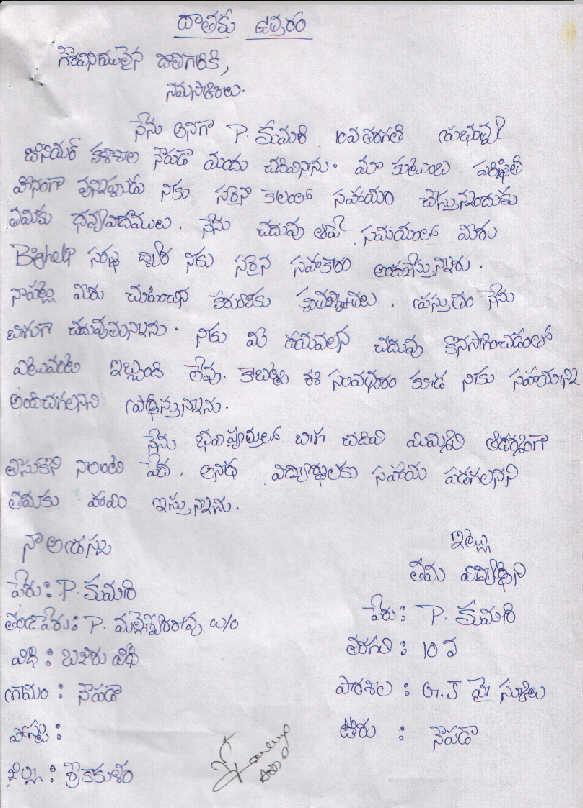 దాతకు ఉత్తరం
గౌరవనీయులైన దాతగారికి,
నమస్కారములు.
నేను అనగా P. కుమారి 10వ తరగతి
జూనియర్ కళాశాల నౌపడా నందు చదివినాను. మా కుటుంబ పరిస్థితి
హీనంగా వున్నప్పుడు నాకు సరైన కాలంలో సహాయం చేస్తున్నందుకు
మీకు ధన్యవాదములు. నేను చదువు ఆపే సమయంలో మీరు
Bighelp సంస్థ ద్వారా నాకు సరైన సహకారం అందిస్తున్నారు.
నాపట్ల మీరు చూపించిన కరుణకు కృతజ్ఞతలు. ప్రస్తుతం నేను
బాగా చదువుతున్నాను. నాకు మీ దయవలన చదువు కొనసాగించడంలో
ఎటువంటి ఇబ్బంది లేవు. కాబట్టి ఈ సంవత్సరం కూడ నాకు సహాయాన్ని
అందించగలరని ప్రార్థిస్తున్నాను.
నేను భవిష్యత్తులో బాగా చదివి మిమ్మల్ని ఆదర్శంగా
తీసుకొని నాలాంటి పేద, అనాథ విద్యార్థులకు సహాయ పడగలనని
తమకు హామి ఇస్తున్నాను.
నా అడ్రస్సు
పేరు : P. కుమారి
తండ్రిపేరు : P. మల్లేశ్వరరావు
వీధి : బజారు వీధి
గ్రామం : నౌపడా
పోస్టు :
జిల్లా : శ్రీకాకుళం
ఇట్లు
తమ విద్యార్థిని
పేరు : P. కుమారి
తరగతి : 10 వ
పాఠశాల : G.J హై స్కూలు
ఊరు : నౌపడా